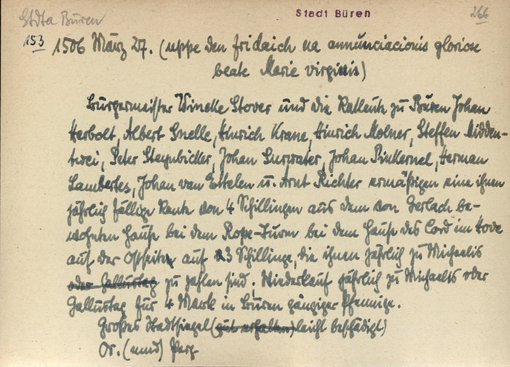 StdtA Büren
Stadt Büren
266
153
1506 März 27. (uppe den fridaich na annunciacionis gloriose
beate Marie virginis)
Bürgermeister Wineke Stover und die Ratleute zu Büren Johan
Herbolt, Albert Snelle, Hinrich Krane, Hinrich Molner, Steffen Midden-
twei, Peter Steynbicker, Johan Surwater, Johan Pinkernel, Herman
Lambertes, Johan van Ettelen u. Arnt Richter ermäßigen eine ihnen
jährlich fällige Rente von 4 Schillingen aus dem von Gerlach be-
wohnten Hause bei dem Rope-Turm bei dem Hause des Cord im Hove
auf der Ostseite auf 3 Schillinge, die ihnen jährlich zu Michaelis
oder Gallustag zu zahlen sind. Wiederkauf jährlich zu Michaelis oder
Gallustag für 4 Mark in Büren gängiger Pfennige.
Großes Stadtsiegel (gut erhalten) leicht beschädigt)
Or. (mnd) Perg